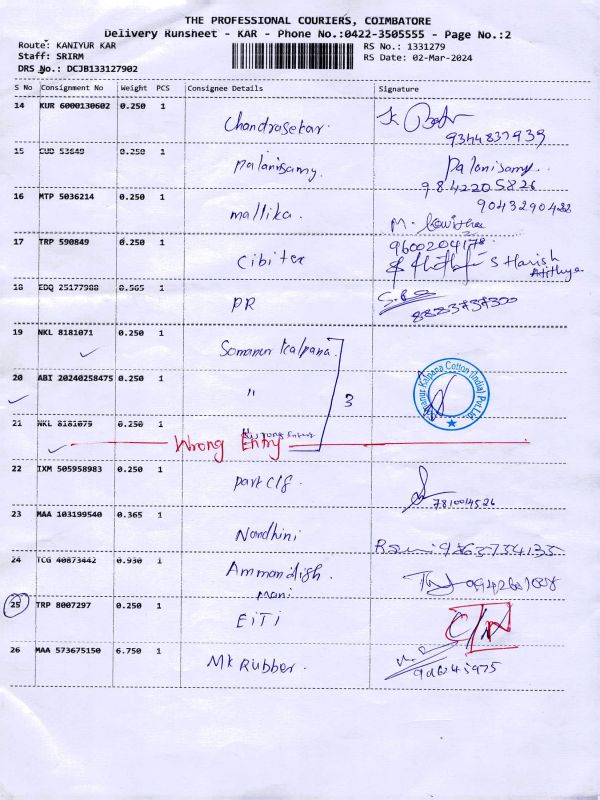 THE PROFESSIONAL COURIERS, COIMBATORE
Delivery Runsheet - KAR - Phone No.:0422-3505555 - Page No.:2
Route: KANIYUR KAR
RS No.: 1331279
Staff: SRIRM
RS Date: 02-Mar-2024
DRS No.: DCJB133127902
S No Consignment No Weight PCS Consignee Details Signature
14 KUR 6000130602 0.250 1 Chandrasekar.
9344837939
15 CUD 53640 0.250 1 Palanisamy. Palanisamy.
9842205826
16 MTP 5036214 0.250 1 Mallika. 9043290488
M.
17 TRP 590849 0.250 1 Cibitex 9600204178
S Harish
Atithya
18 EDQ 25177988 0.565 1 PR
8883737300
19 NKL 8181071 0.250 1 Somanur Kalpana.
20 ABI 20240258475 0.250 1 "
3
Somanur Kalpana Cotton (India) Pvt. Ltd.
21 NKL 8181079 0.250 1 Wrong Entry
Wrong Entry
22 IXM 505958983 0.250 1 Part Clg
7810014526
23 MAA 103199540 0.365 1 Nandhini 9863734133
24 TCG 40873442 0.930 1 Ammandish.
Mani
25 TRP 8007297 0.250 1 EiTi
26 MAA 573675150 6.750 1 MK Rubber.